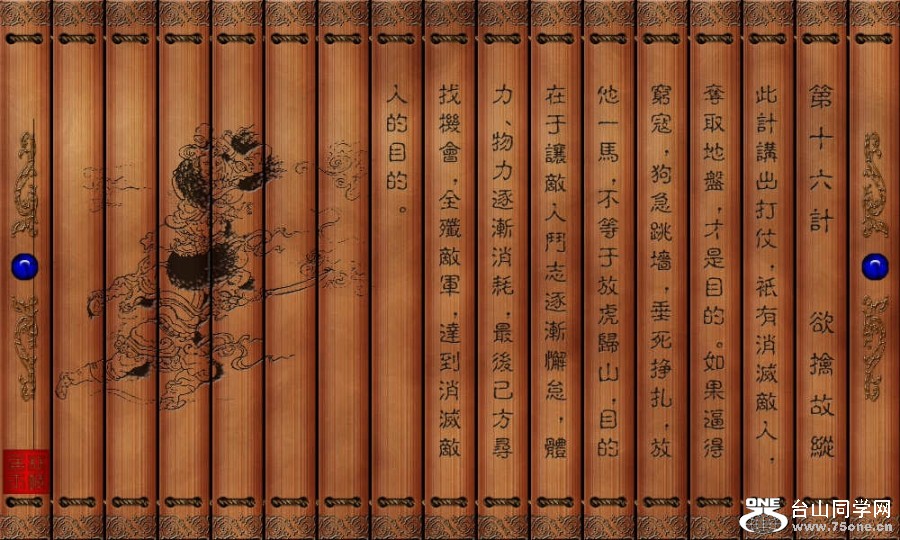 第十六計 欲擒故縱
此計講出打仗，衹有消滅敵人，
奪取地盤，才是目的。如果逼得
窮寇，狗急跳墻，垂死掙扎，放
他一馬，不等于放虎歸山，目的
在于讓敵人鬥志逐漸懈怠，體
力、物力逐漸消耗，最後己方尋
找機會，全殲敵軍，達到消滅敵
人的目的。
ONE
台山同学网
www.75one.cn